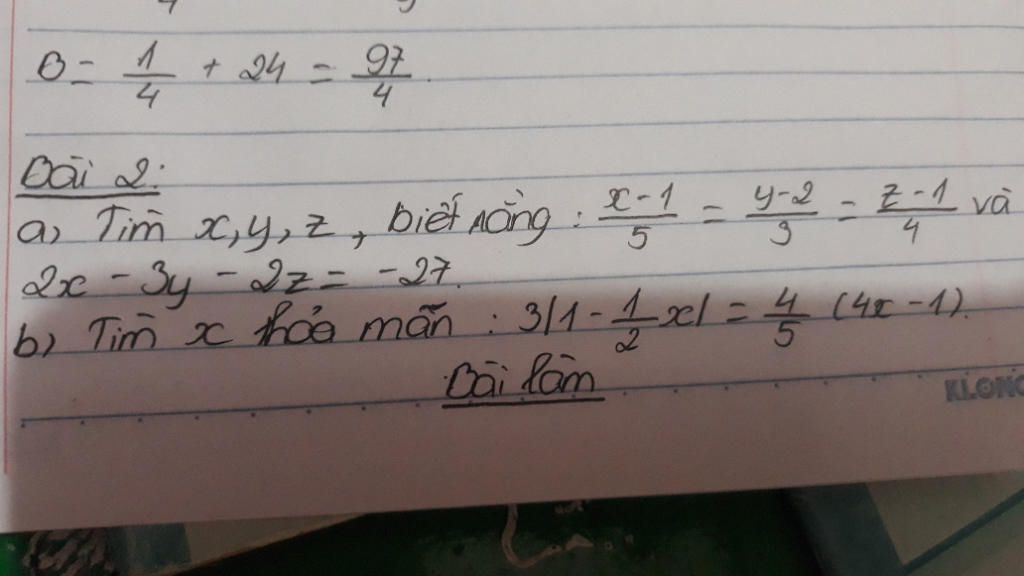 B = 1/4 + 24 = 97/4.
Bài 2:
a, Tìm x, y, z, biết rằng: x-1/5 = y-2/3 = z-1/4 và
2x - 3y - 2z = -27.
b) Tìm x thỏa mãn: 3|1 - 1/2 x| = 4/5 (4x - 1).
Bài làm
KLONG